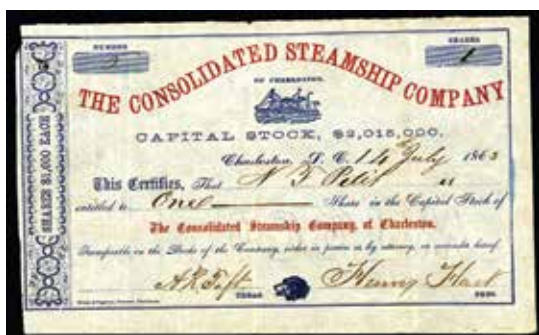 NUMBER
SHARES
1
THE CONSOLIDATED STEAMSHIP COMPANY
OF CHARLESTON.
CAPITAL STOCK, $2,015,000.
Charleston, S. C. 14 July 1863
This Certifies, That
entitled to One Share in the Capital Stock of
The Consolidated Steamship Company, of Charleston.
Transferable in the Books of the Company, either in person or by attorney, on surrender hereof.
TREAS.
Henry Hart
PRES.
SHARES $1,000 EACH